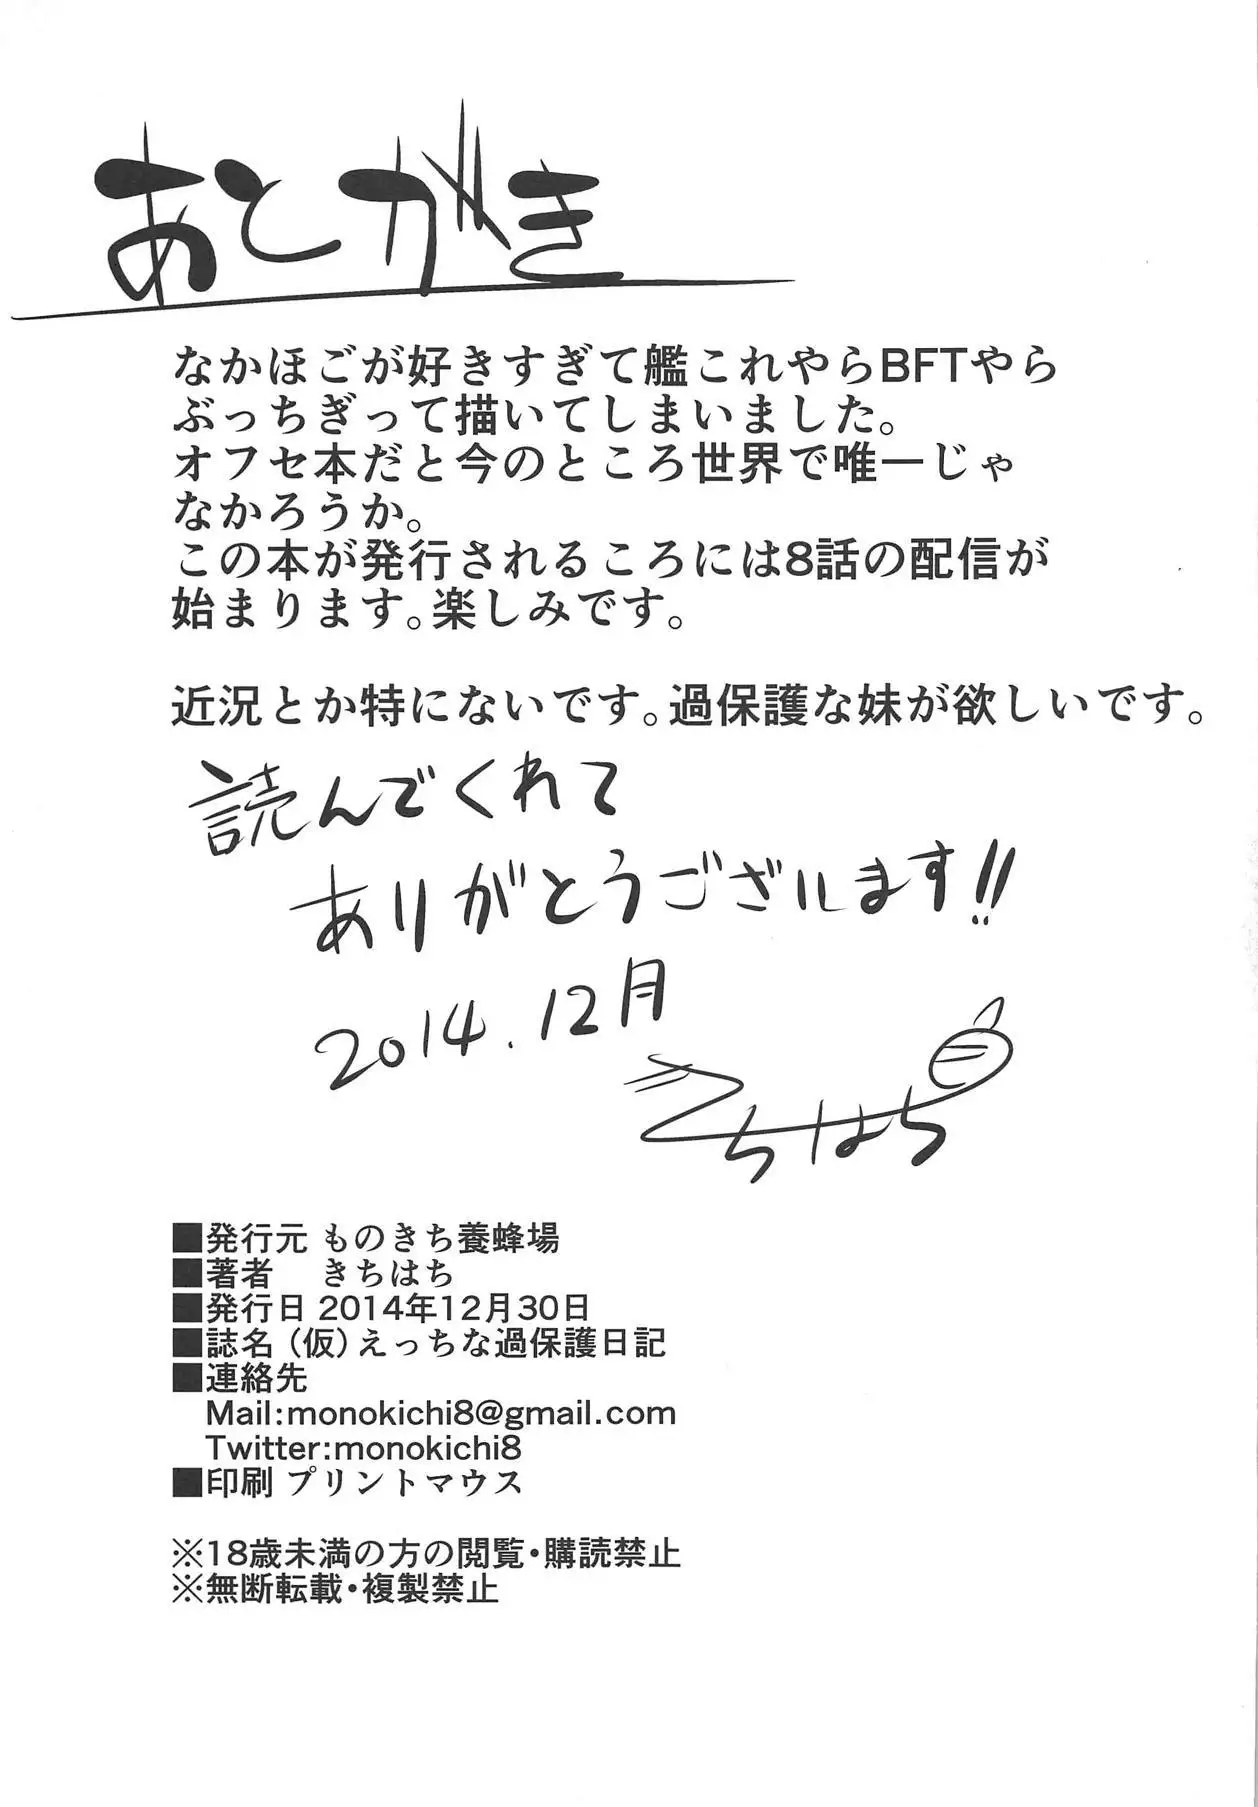 あとがき
なかほごが好きすぎて艦これやらBFTやら
ぶっちぎって描いてしまいました。
オフセ本だと今のところ世界で唯一じゃ
なかろうか。
この本が発行されるころには8話の配信が
始まります。楽しみです。
近況とか特にないです。過保護な妹が欲しいです。
読んでくれて
ありがとうございます!!
2014.12月
きちはち
■発行元 ものきち養蜂場
■著者 きちはち
■発行日 2014年12月30日
■誌名（仮）えっちな過保護日記
■連絡先
Mail:monokichi8@gmail.com
Twitter:monokichi8
■印刷 プリントマウス
※18歳未満の方の閲覧・購読禁止
※無断転載・複製禁止